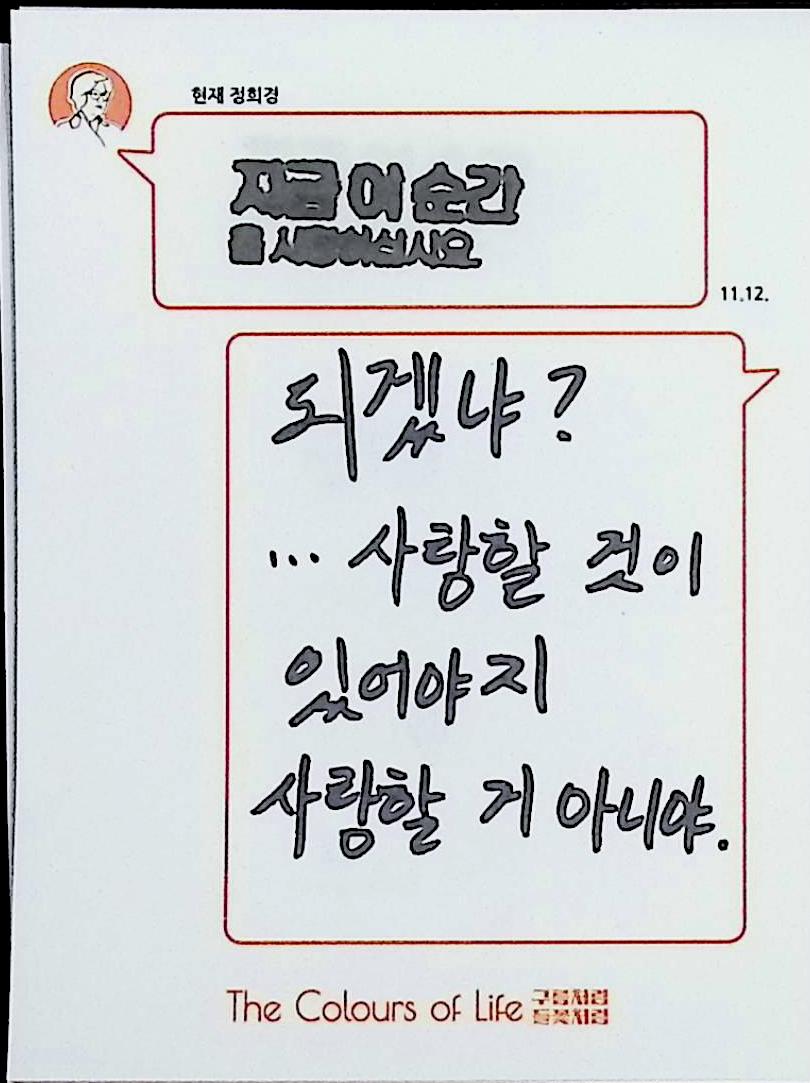 현재 정희경
지금 이 순간
을 사랑하십시오
11.12.
되겠냐?
... 사랑할 것이
있어야지
사랑할 거 아니야.
The Colours of Life 구름처럼
들꽃처럼